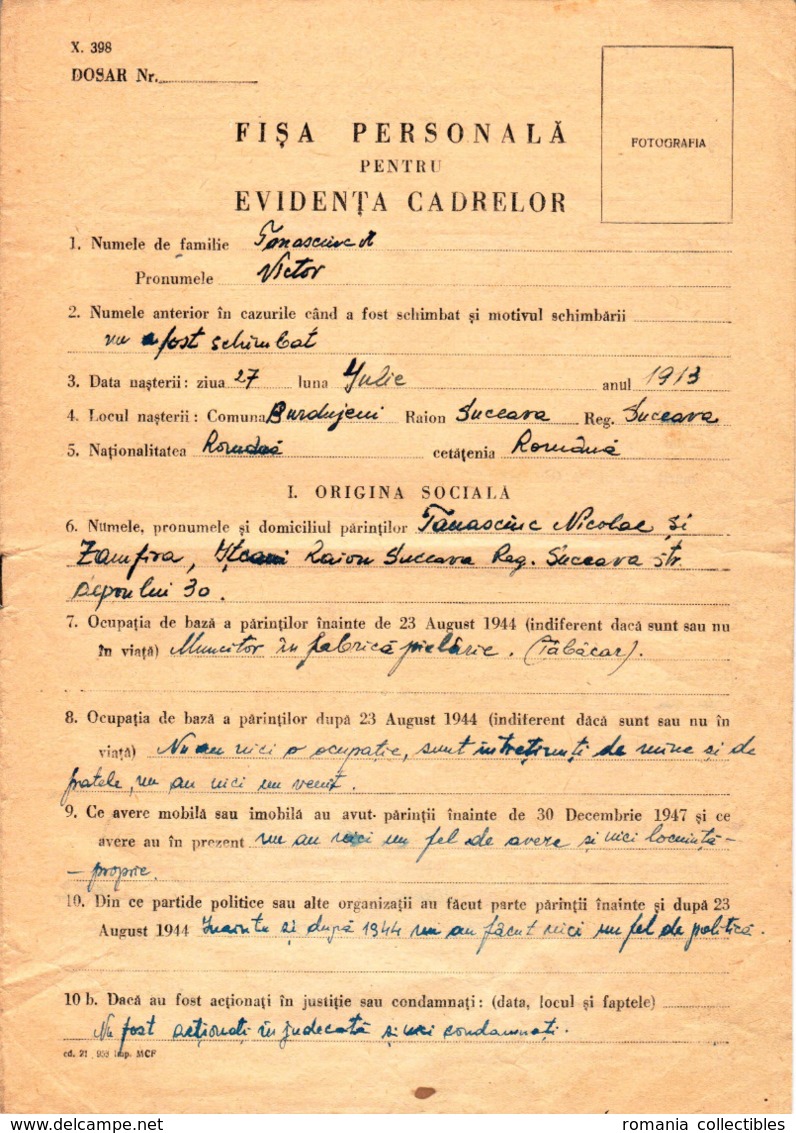 X. 398
DOSAR Nr.
FOTOGRAFIA
FIȘA PERSONALĂ
PENTRU
EVIDENȚA CADRELOR
1. Numele de familie Tanasciuc
Pronumele Victor
2. Numele anterior în cazurile când a fost schimbat și motivul schimbării
nu a fost schimbat
3. Data nașterii: ziua 27 luna Iulie anul 1913
4. Locul nașterii: Comuna Burdujeni Raion Suceava Reg. Suceava
5. Naționalitatea Română cetățenia Română
I. ORIGINA SOCIALĂ
6. Numele, pronumele și domiciliul părinților Tanasciuc Nicolae și
Zamfira, Ițcani Raion Suceava Reg. Suceava str.
Depoului 30.
7. Ocupația de bază a părinților înainte de 23 August 1944 (indiferent dacă sunt sau nu
în viață) Muncitor în fabrică pielărie. (Tăbăcar).
8. Ocupația de bază a părinților după 23 August 1944 (indiferent dăcă sunt sau nu în
viață) Nu au nici o ocupație, sunt întreținuți de mine și de
fratele, nu au nici un venit.
9. Ce avere mobilă sau imobilă au avut părinții înainte de 30 Decembrie 1947 și ce
avere au în prezent nu au nici un fel de avere și nici locuință-
-proprie.
10. Din ce partide politice sau alte organizații au făcut parte părinții înainte și după 23
August 1944 Înainte și după 1944 nu au făcut nici un fel de politică.
10 b. Dacă au fost acționați în justiție sau condamnați: (data, locul și faptele)
Nu fost acționați în judecată și nici condamnați.
cd. 21 953 Imp. MCF
romania collectibles